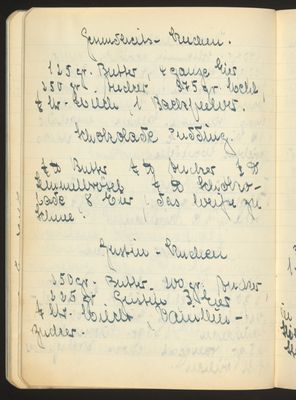 Gesundheits-Kuchen.
125 gr. Butter, 4 ganze Eier
250 gr. Zucker 375 gr. Mehl
¼ ltr. Milch 1 Backpulver.
Schokolade Pudding.
¼ ℔ Butter ¼ ℔ Zucker ¼ ℔
Semmelbrösel ¼ ℔ Schoko-
lade 8 Eier, das weiße zu
Schnee.
Gustin-Kuchen
250 gr. Butter 200 gr. Zucker
125 gr Gustin 3 Eier
Milch Vanillin-
Zucker.